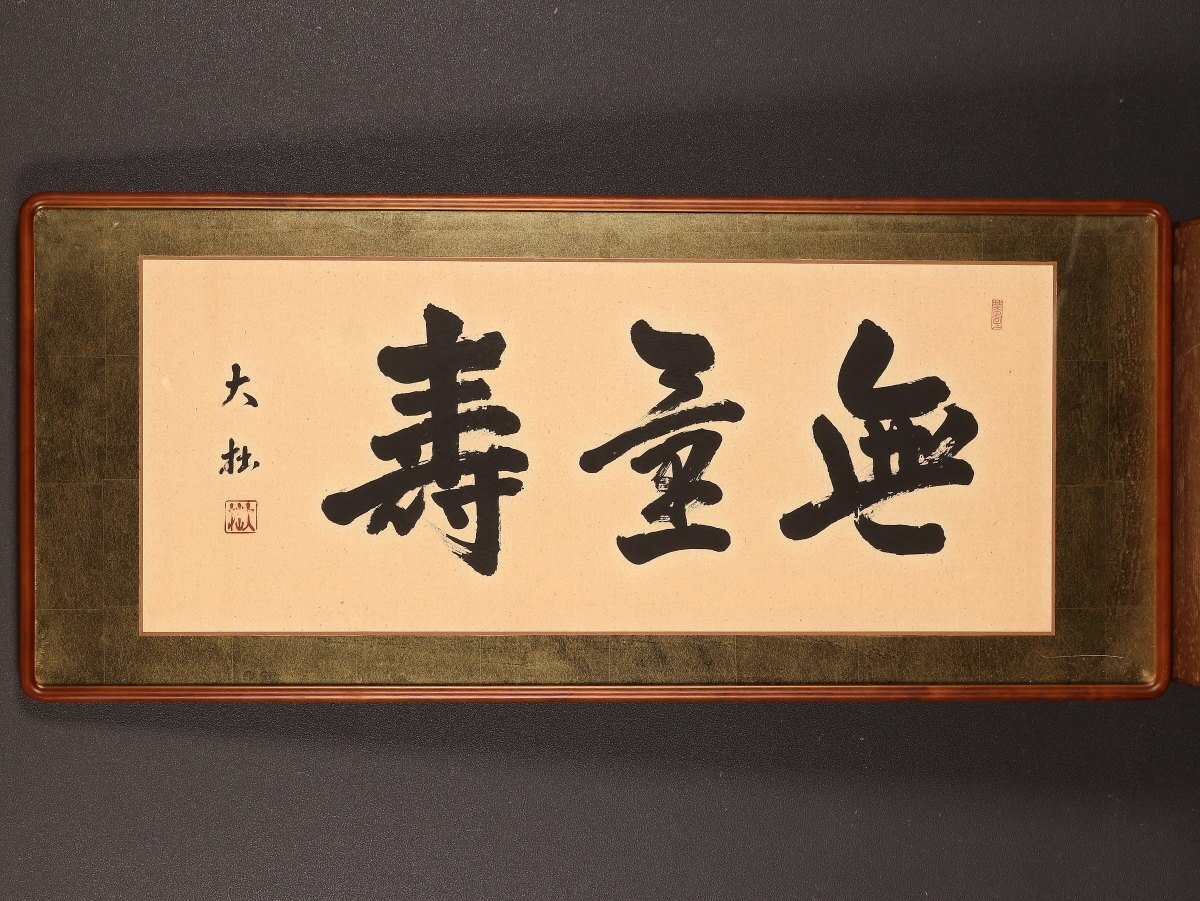 無量壽
大拙